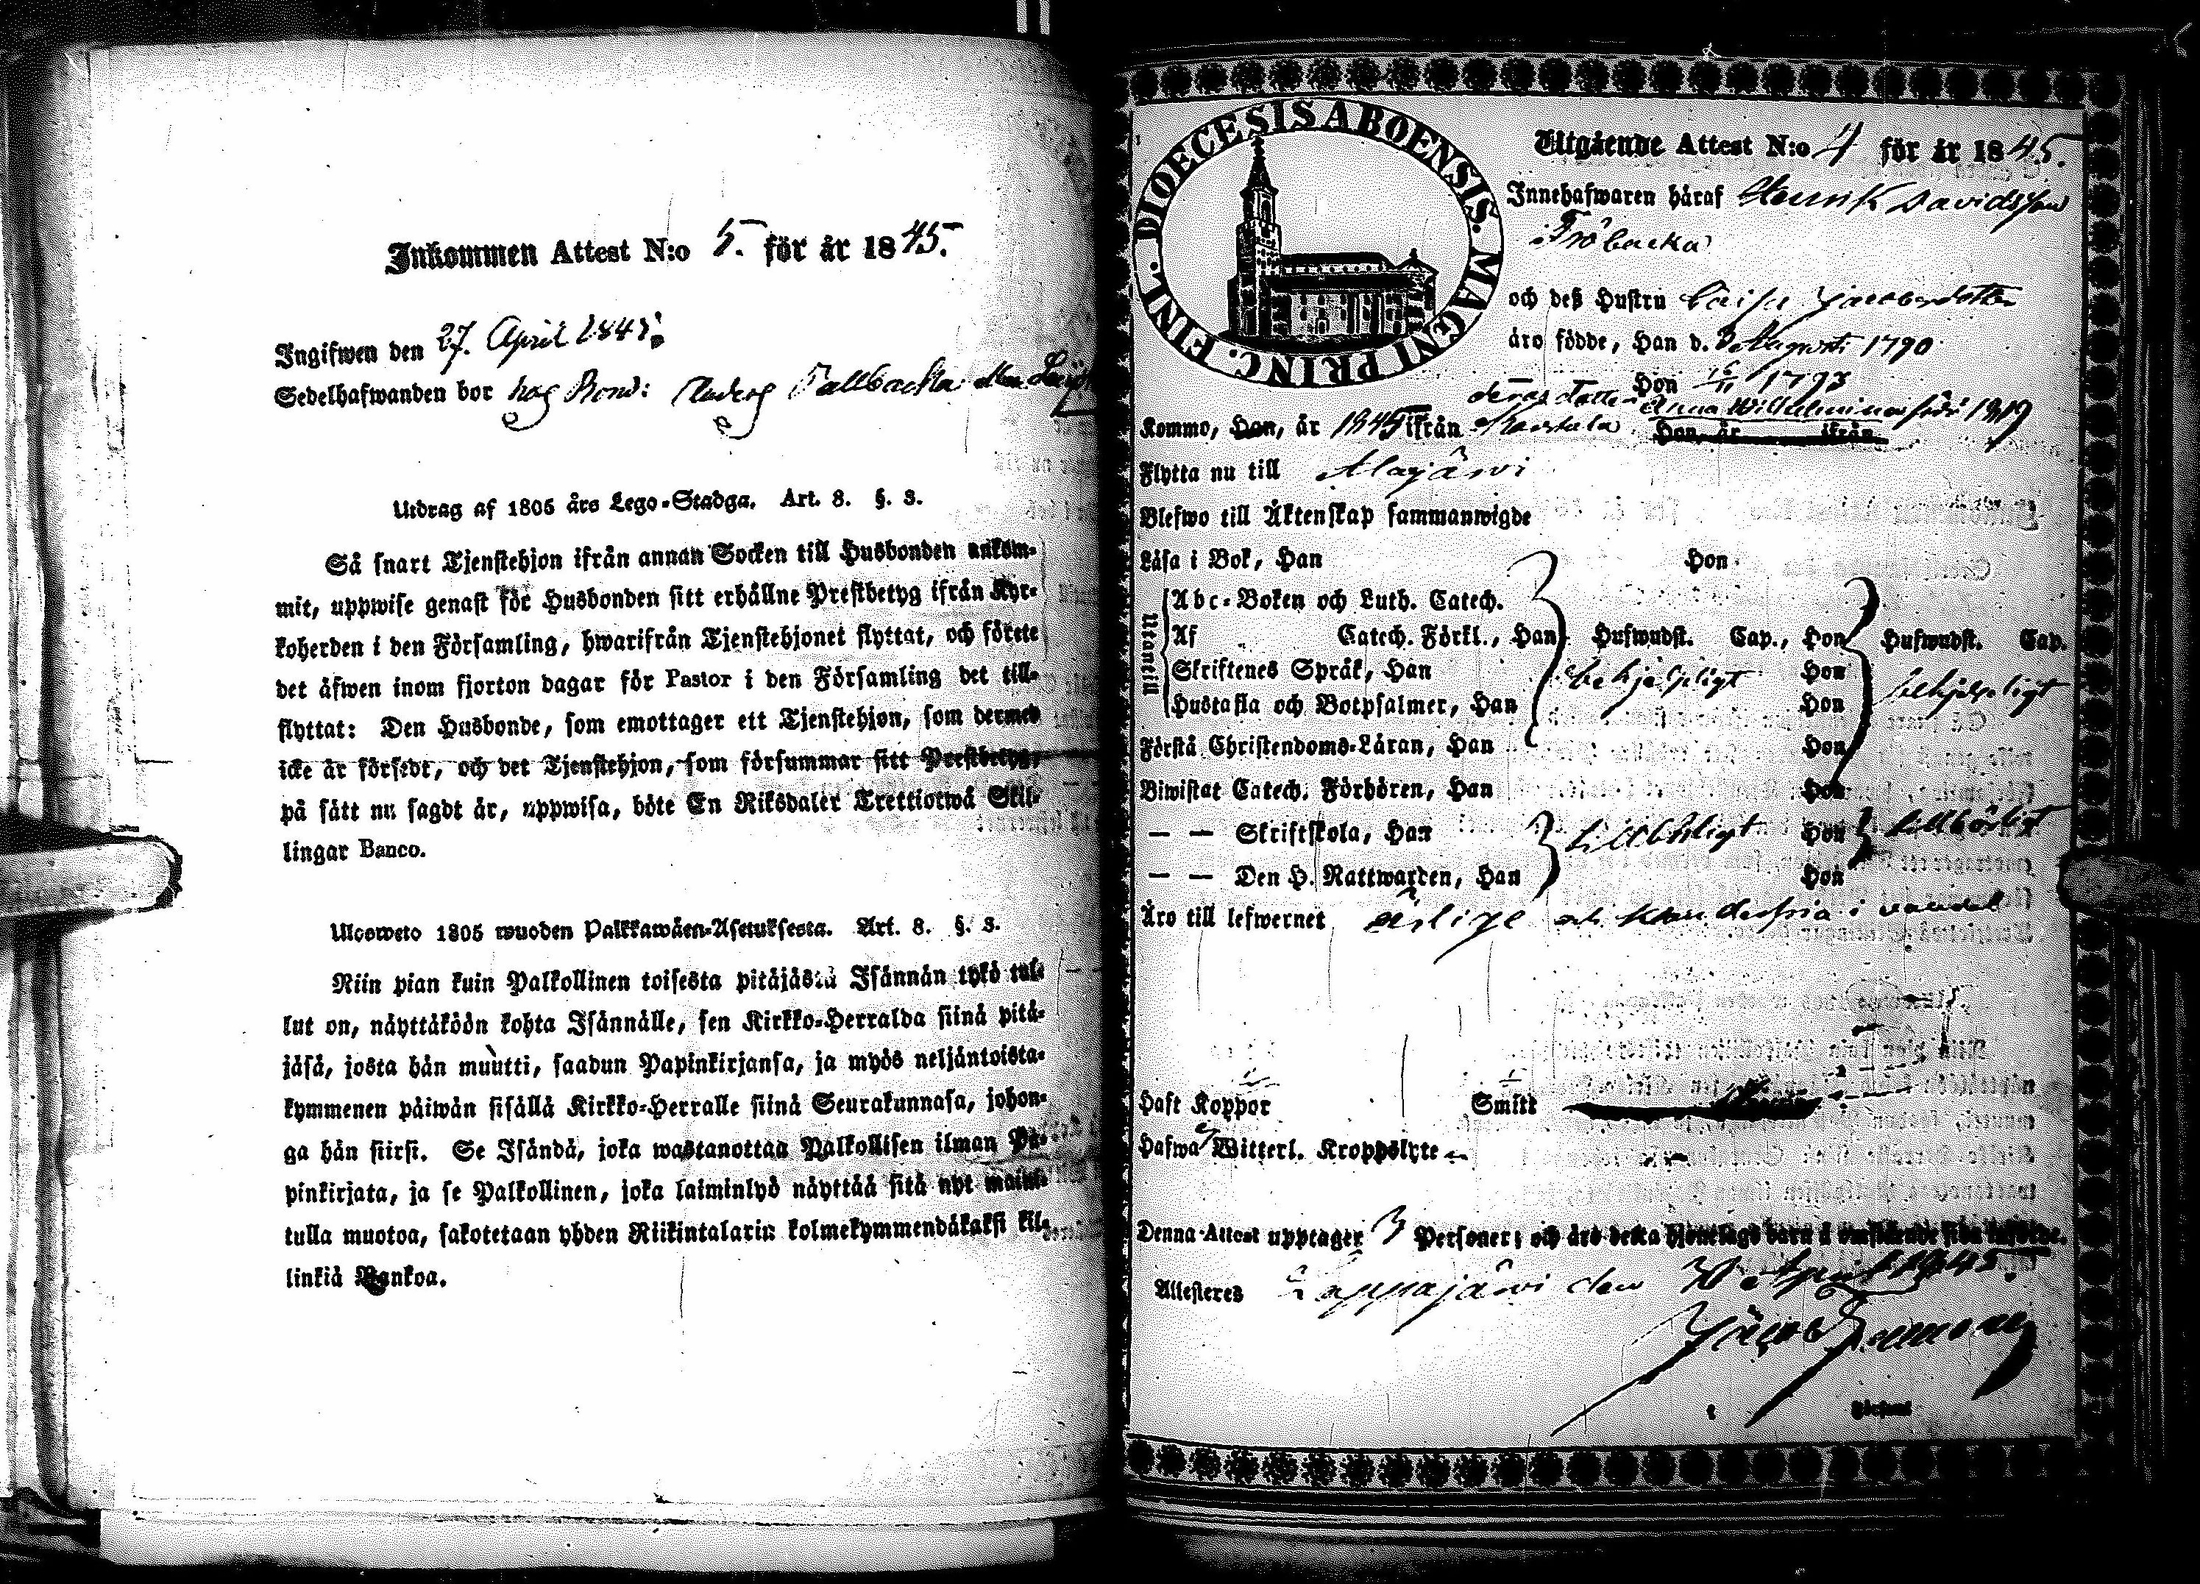 Inkommen Attest N:o 5. för år 1845.
Ingifwen den 27. April 1845.
Sedelhafwanden bor hos Bond:
Utdrag af 1805 års Lego-Stadga. Art. 8. §. 3.
Så snart Tjenstehjon ifrån annan Socken till Husbonden ankom-
mit, uppwise genast för Husbonden sitt erhållne Prestbetyg ifrån Kyr-
koherden i den Församling, hwarifrån Tjenstehjonet flyttat, och förete
det äfwen inom fjorton dagar för Pastor i den Församling det till-
flyttat: Den Husbonde, som emottager ett Tjenstehjon, som dermed
icke är försedt, och det Tjenstehjon, som försummar sitt Prestbetyg,
på sätt nu sagdt är, uppwisa, böte En Riksdaler Trettiotwå Skil-
lingar Banco.
Ulosweto 1805 wuoden Palkkawäen-Asetuksesta. Art. 8. §. 3.
Niin pian kuin Palkollinen toisesta pitäjästä Isännän tykö tul-
lut on, näyttäköön kohta Isännälle, sen Kirkko-Herralda siinä pitä-
jäsä, josta hän muutti, saadun Papinkirjansa, ja myös neljäntoista-
kymmenen päiwän sisällä Kirkko-Herralle siinä Seurakunnasa, johon-
ga hän siirsi. Se Isändä, joka wastanottaa Palkollisen ilman Pa-
pinkirjata, ja se Palkollinen, joka laiminlyö näyttää sitä nyt mainit-
tulla muotoa, sakotetaan yhden Riikintalarin kolmekymmendäkaksi kil-
linkiä Bankoa.
DIOECESIS ABOENSIS. MAGNI PRINC. FINL.
Utgående Attest N:o 4 för år 1845.
Innehafwaren häraf Henrik Davidsson
Fröbacka
och deß Hustru Caisa Jacobsdotter
äro födde, Han d. 3 Augusti 1790
Hon 15/11 1793
deras dotter Anna Wilhelmina född 1819
Kommo, Han, år 1845 ifrån Hon, år ifrån
Flytta nu till Alajärwi
Blefwo till Äktenskap sammanwigde
Läsa i Bok, Han Hon
Utantill
Abc-Boken och Luth. Catech.
Af Catech. Förkl., Han Hufwudst. Cap., Hon Hufwudst. Cap.
Skriftenes Språk, Han behjelpligt Hon behjelpligt
Hustafla och Botpsalmer, Han Hon
Förstå Christendoms-Läran, Han Hon
Biwistat Catech. Förhören, Han Hon
— — Skriftskola, Han tillbörligt Hon tillbörligt
— — Den H. Nattwarden, Han Hon
Äro till lefwernet ärlige och klanderfria i vandel
Haft Koppor Smitt
Hafwa ej Witterl. Kroppslyte
Denna Attest upptager 3 Personer; och äro detta Hjonelags barn å omstående sida införde.
Attesteres Lappajärwi den 30 April 1845.